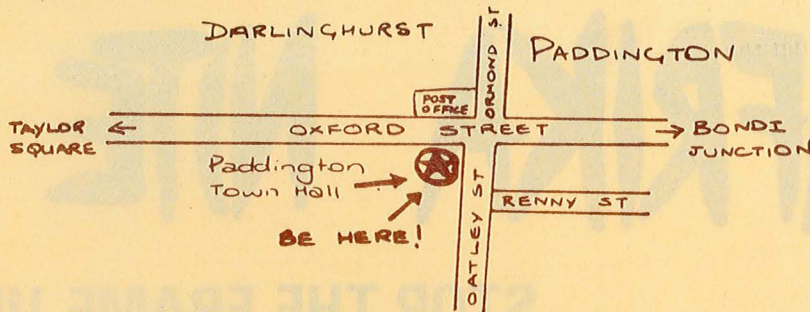 DARLINGHURST
PADDINGTON
ORMOND ST
POST
OFFICE
TAYLOR
SQUARE
OXFORD STREET
BONDI
JUNCTION
Paddington
Town Hall
BE HERE!
OATLEY ST
RENNY ST
STOP THE FRAME UP